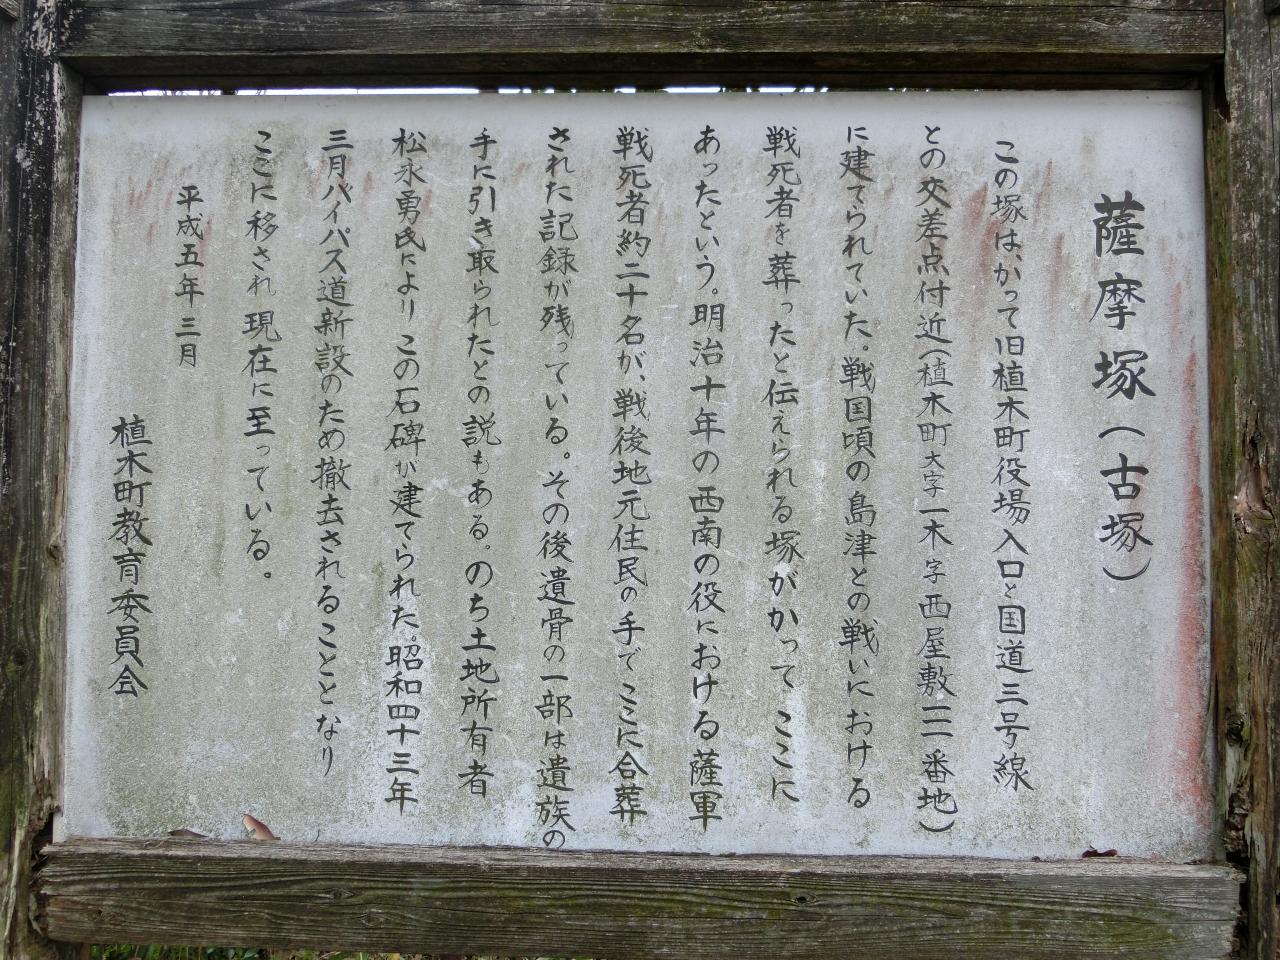 薩摩塚(古塚)
この塚は、かつて旧植木町役場入口と国道三号線
との交差点付近(植木町大字一木字西屋敷一二一番地)
に建てられていた。戦国頃の島津との戦いにおける
戦死者を葬ったと伝えられる塚がかつてここに
あったという。明治十年の西南の役における薩軍
戦死者約二十名が、戦後地元住民の手でここに合葬
された記録が残っている。その後遺骨の一部は遺族の
手に引き取られたとの説もある。のち土地所有者
松永勇氏によりこの石碑が建てられた。昭和四十三年
三月バイパス道新設のため撤去されることとなり
ここに移され現在に至っている。
平成五年三月
植木町教育委員会